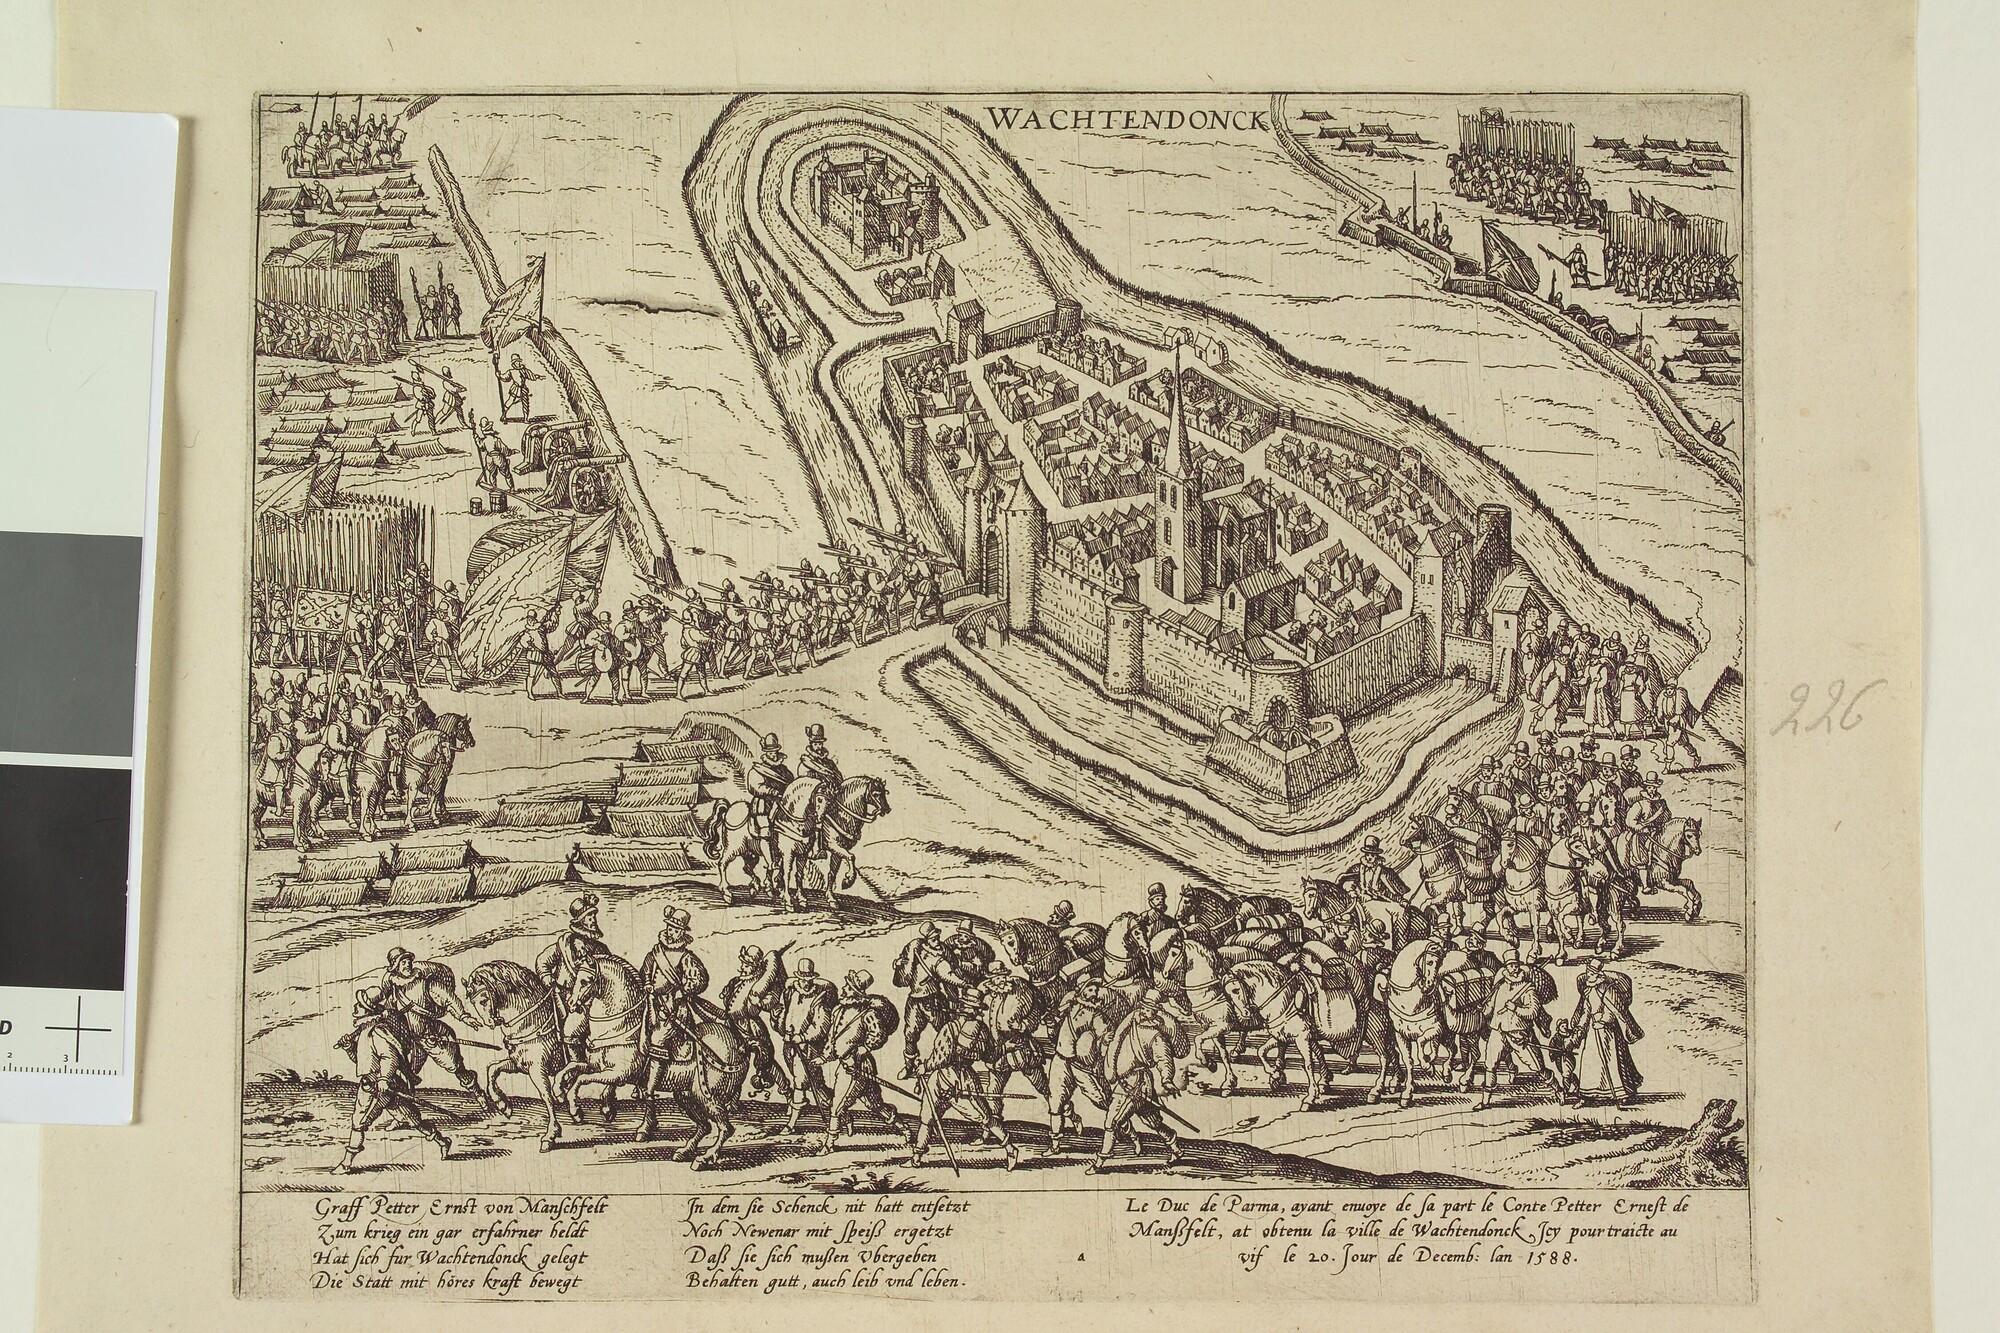 WACHTENDONCK
226
D
2 3
Graff Petter Ernst von Manschfelt
Zum krieg ein gar erfahrner heldt
Hat sich fur Wachtendonck gelegt
Die Statt mit höres kraft bewegt
In dem sie Schenck nit hatt entsetzt
Noch Newenar mit speiß ergetzt
Daß sie sich mußen Vbergeben
Behalten gutt, auch leib vnd leben.
a
Le Duc de Parma, ayant enuoye de sa part le Conte Petter Ernest de
Manßfelt, at obtenu la ville de Wachtendonck Jcy pourtraicte au
vif le 20. Jour de Decemb: lan 1588.